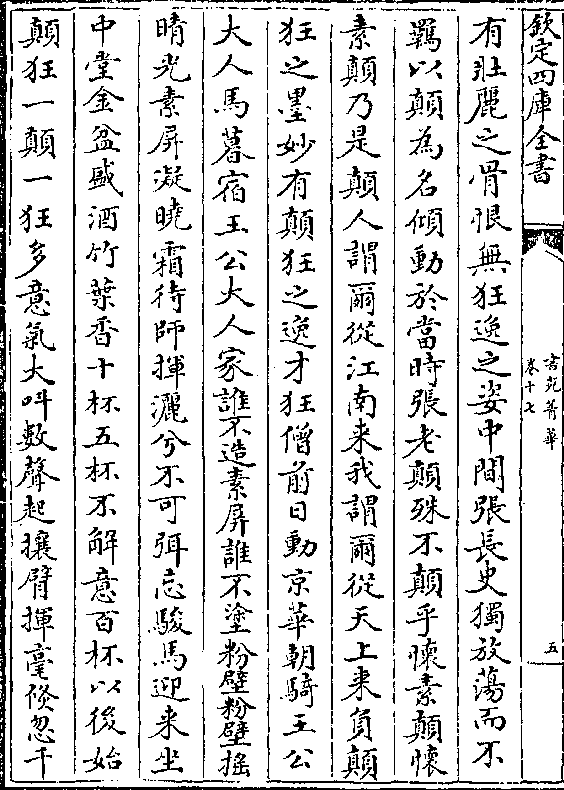 欽定四庫全書
書苑菁華
卷十七
五
有壯麗之骨恨無狂逸之姿中間張長史獨放蕩而不
羈以顛為名傾動於當時張老顛殊不顛乎懷素顛懷
素顛乃是顛人謂爾從江南来我謂爾從天上来負顛
狂之墨妙有顛狂之逸才狂僧前日動京華朝騎王公
大人馬暮宿王公大人家誰不造素屏誰不塗粉壁粉壁揺
晴光素屏凝曉霜待師揮灑兮不可弭忘駿馬迎来坐
中堂金盆盛酒竹葉香十杯五杯不解意百杯以後始
顛狂一顛一狂多意氣大叫數聲起攘臂揮毫倐忽千